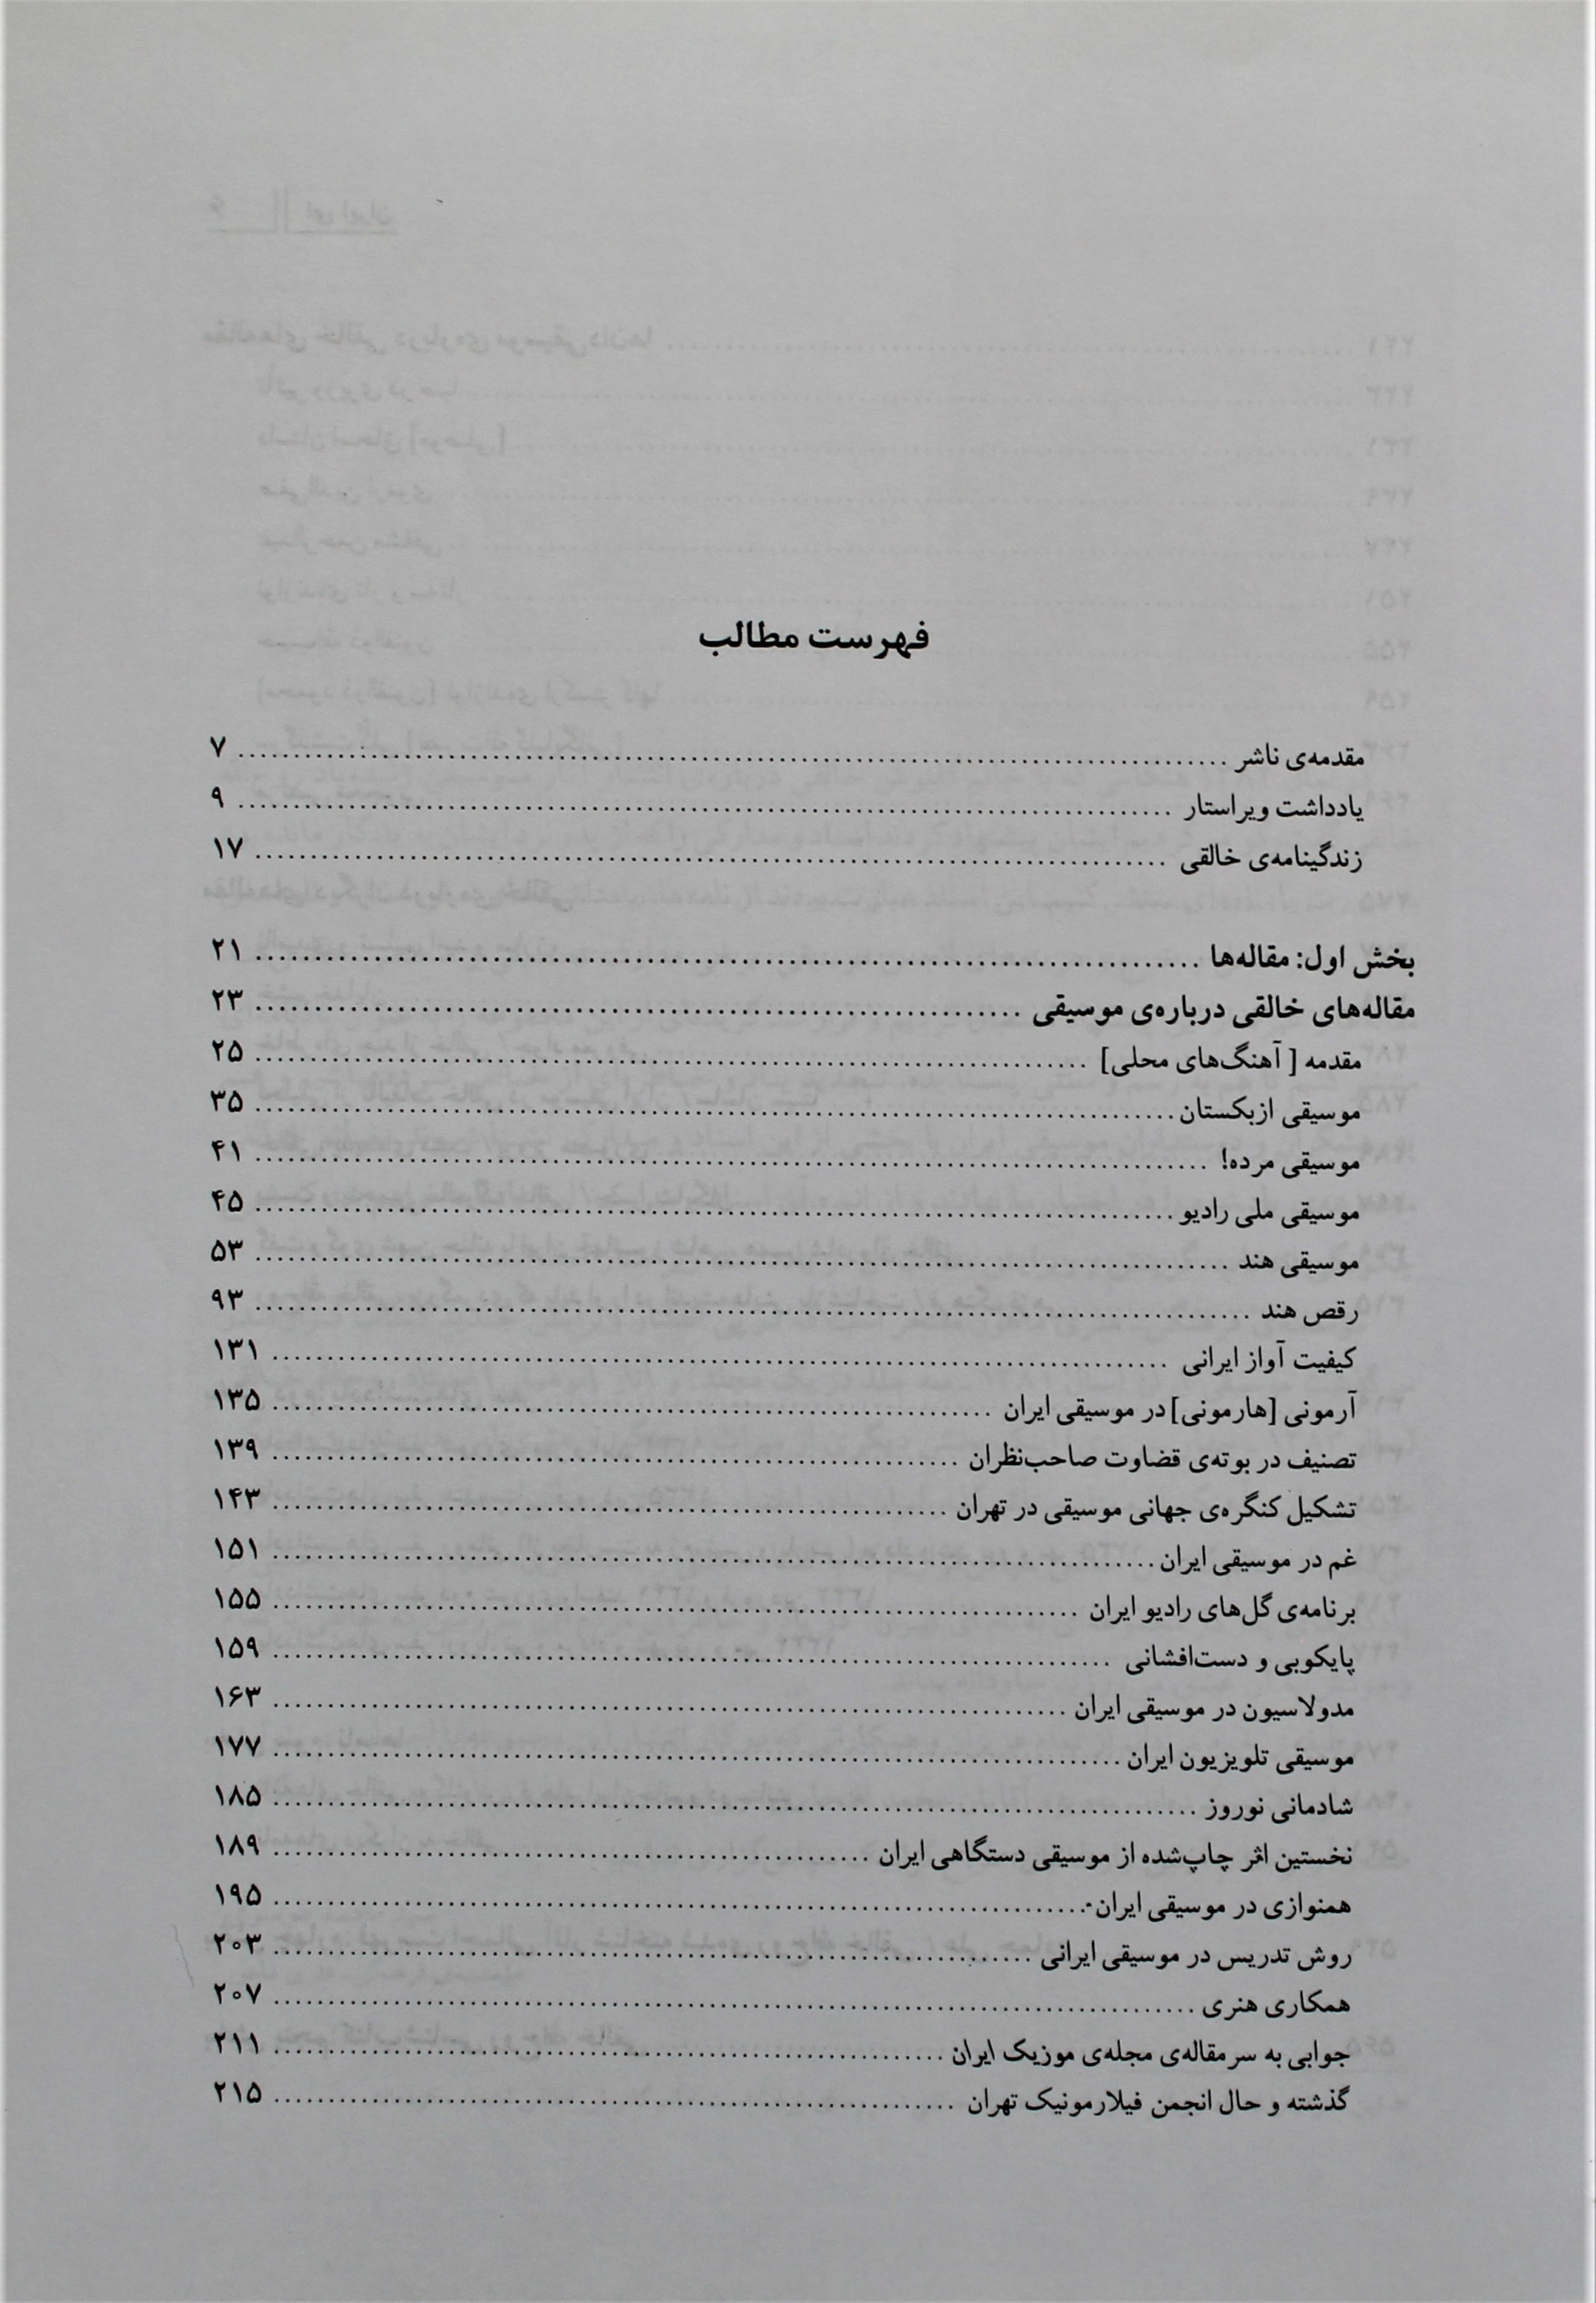 فهرست مطالب
مقدمه‌ی ناشر ........ ۷
یادداشت ویراستار ........ ۹
زندگینامه‌ی خالقی ........ ۱۷
بخش اول: مقاله‌ها ........ ۲۱
مقاله‌های خالقی درباره‌ی موسیقی ........ ۲۳
مقدمه [ آهنگ‌های محلی] ........ ۲۵
موسیقی ازبکستان ........ ۳۵
موسیقی مرده! ........ ۴۱
موسیقی ملی رادیو ........ ۴۵
موسیقی هند ........ ۵۳
رقص هند ........ ۹۳
کیفیت آواز ایرانی ........ ۱۳۱
آرمونی [هارمونی] در موسیقی ایران ........ ۱۳۵
تصنیف در بوته‌ی قضاوت صاحب‌نظران ........ ۱۳۹
تشکیل کنگره‌ی جهانی موسیقی در تهران ........ ۱۴۳
غم در موسیقی ایران ........ ۱۵۱
برنامه‌ی گل‌های رادیو ایران ........ ۱۵۵
پایکوبی و دست‌افشانی ........ ۱۵۹
مدولاسیون در موسیقی ایران ........ ۱۶۳
موسیقی تلویزیون ایران ........ ۱۷۷
شادمانی نوروز ........ ۱۸۵
نخستین اثر چاپ‌شده از موسیقی دستگاهی ایران ........ ۱۸۹
همنوازی در موسیقی ایران ........ ۱۹۵
روش تدریس در موسیقی ایرانی ........ ۲۰۳
همکاری هنری ........ ۲۰۷
جوابی به سرمقاله‌ی مجله‌ی موزیک ایران ........ ۲۱۱
گذشته و حال انجمن فیلارمونیک تهران ........ ۲۱۵